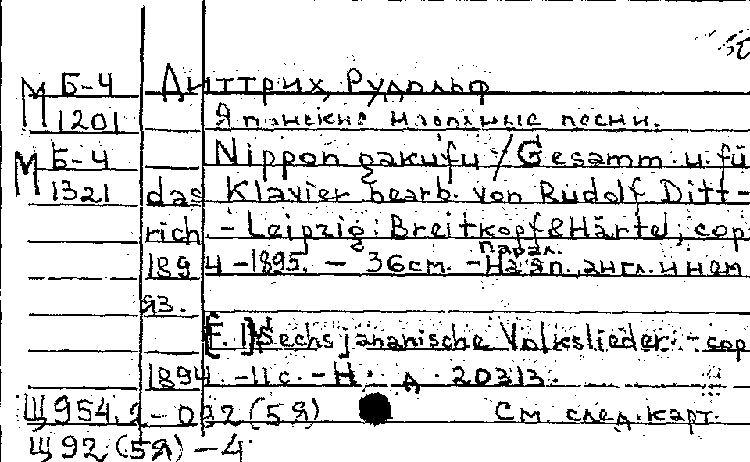 М Б-4 Диттрих, Рудольф
1201 Японские народные песни.
М Б-4 Nippon gakufu / Gesamm. u. fü
1321 das Klavier bearb. von Rudolf Ditt-
rich - Leipzig: Breitkopf & Härtel, cop
1894-1895. - 36cm. - На парал. яп., англ. и нем
яз.
[Е. 1] Sechs japanische Volkslieder. - cop
1894. -11 с. - Н. д. 20313.
Щ954.2-032(5Я) См след. карт.
Щ92(5Я)-4